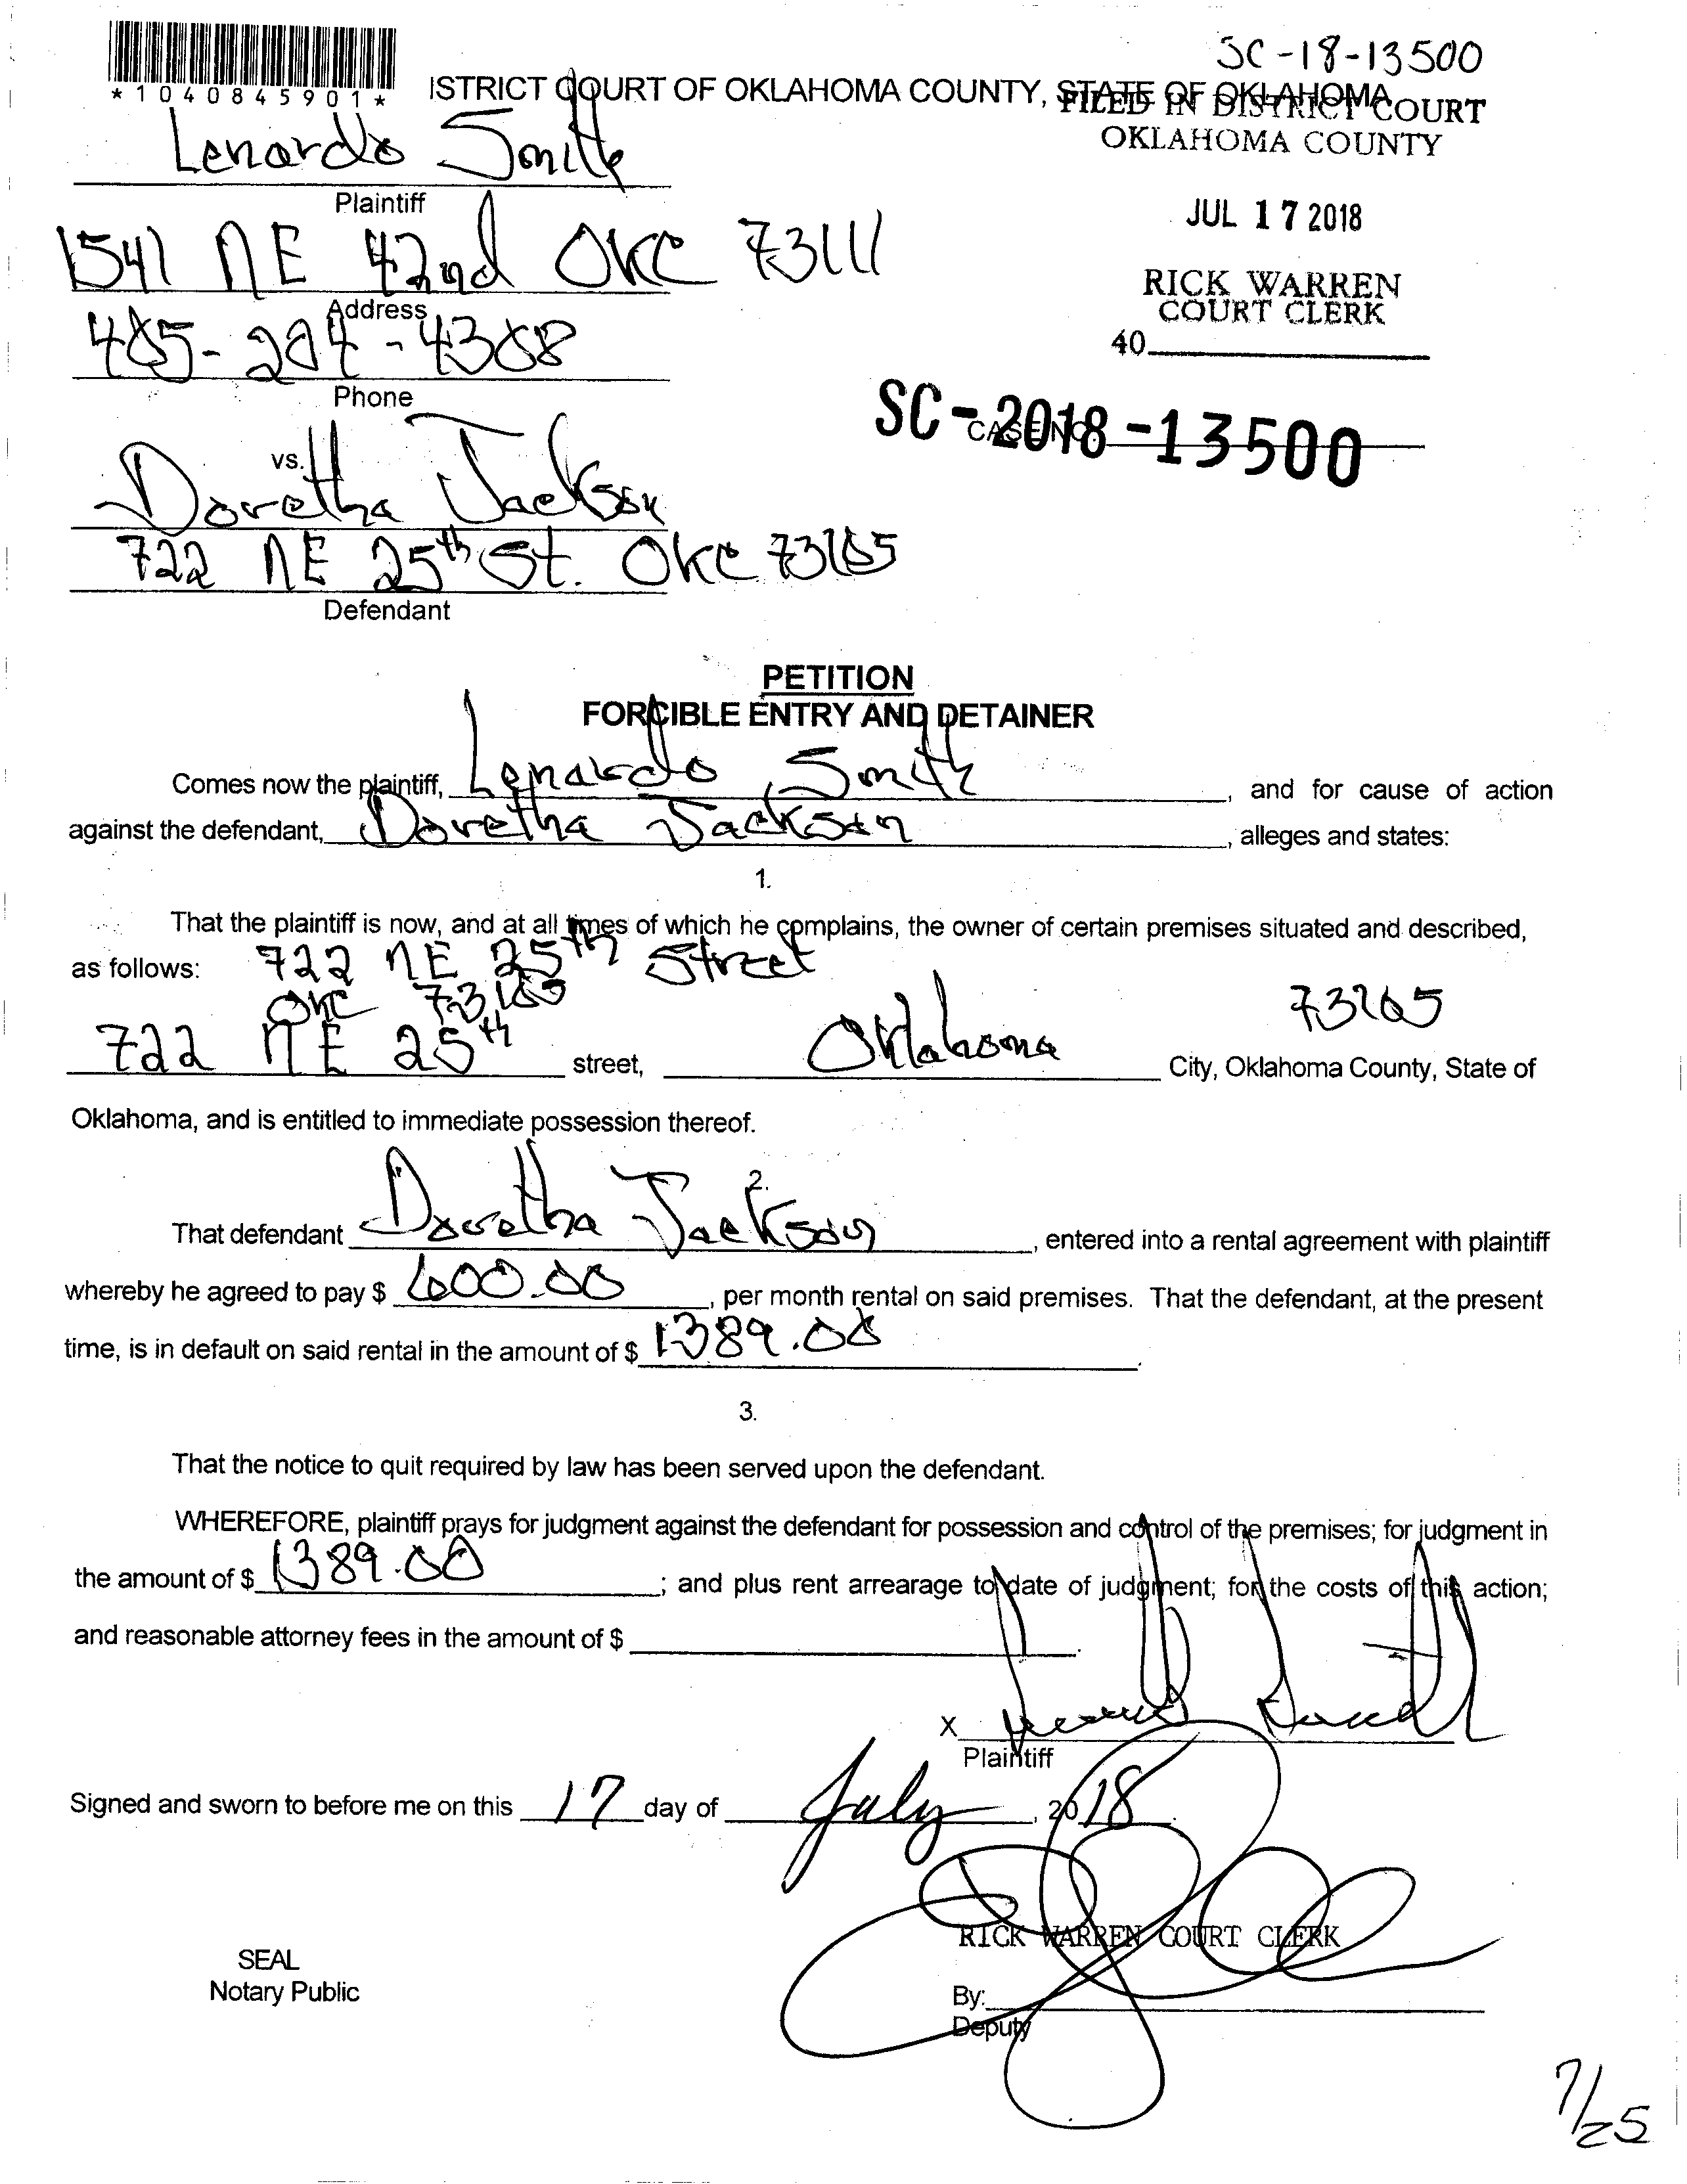 SC-18-13500
*1040845901*
ISTRICT COURT OF OKLAHOMA COUNTY, STATE OF OKLAHOMA
FILED IN DISTRICT COURT
OKLAHOMA COUNTY
Lenardo Smith
Plaintiff
JUL 17 2018
1541 NE 42nd OKC 73111
Address
RICK WARREN
COURT CLERK
40
405-204-4308
Phone
SC-2018-13500
CASE NO.
vs.
Doretha Jackson
722 NE 25th St. OKC 73105
Defendant
PETITION
FORCIBLE ENTRY AND DETAINER
Comes now the plaintiff, Lenardo Smith, and for cause of action
against the defendant, Doretha Jackson, alleges and states:
1.
That the plaintiff is now, and at all times of which he complains, the owner of certain premises situated and described,
as follows: 722 NE 25th Street
OKC 73105
73105
722 NE 25th street, Oklahoma City, Oklahoma County, State of
Oklahoma, and is entitled to immediate possession thereof.
2.
That defendant Doretha Jackson, entered into a rental agreement with plaintiff
whereby he agreed to pay $ 600.00, per month rental on said premises. That the defendant, at the present
time, is in default on said rental in the amount of $ 1389.00.
3.
That the notice to quit required by law has been served upon the defendant.
WHEREFORE, plaintiff prays for judgment against the defendant for possession and control of the premises; for judgment in
the amount of $ 1389.00; and plus rent arrearage to date of judgment; for the costs of this action;
and reasonable attorney fees in the amount of $
X Lenardo Smith
Plaintiff
Signed and sworn to before me on this 17 day of July, 2018.
RICK WARREN COURT CLERK
SEAL
Notary Public
By:
Deputy
7/25